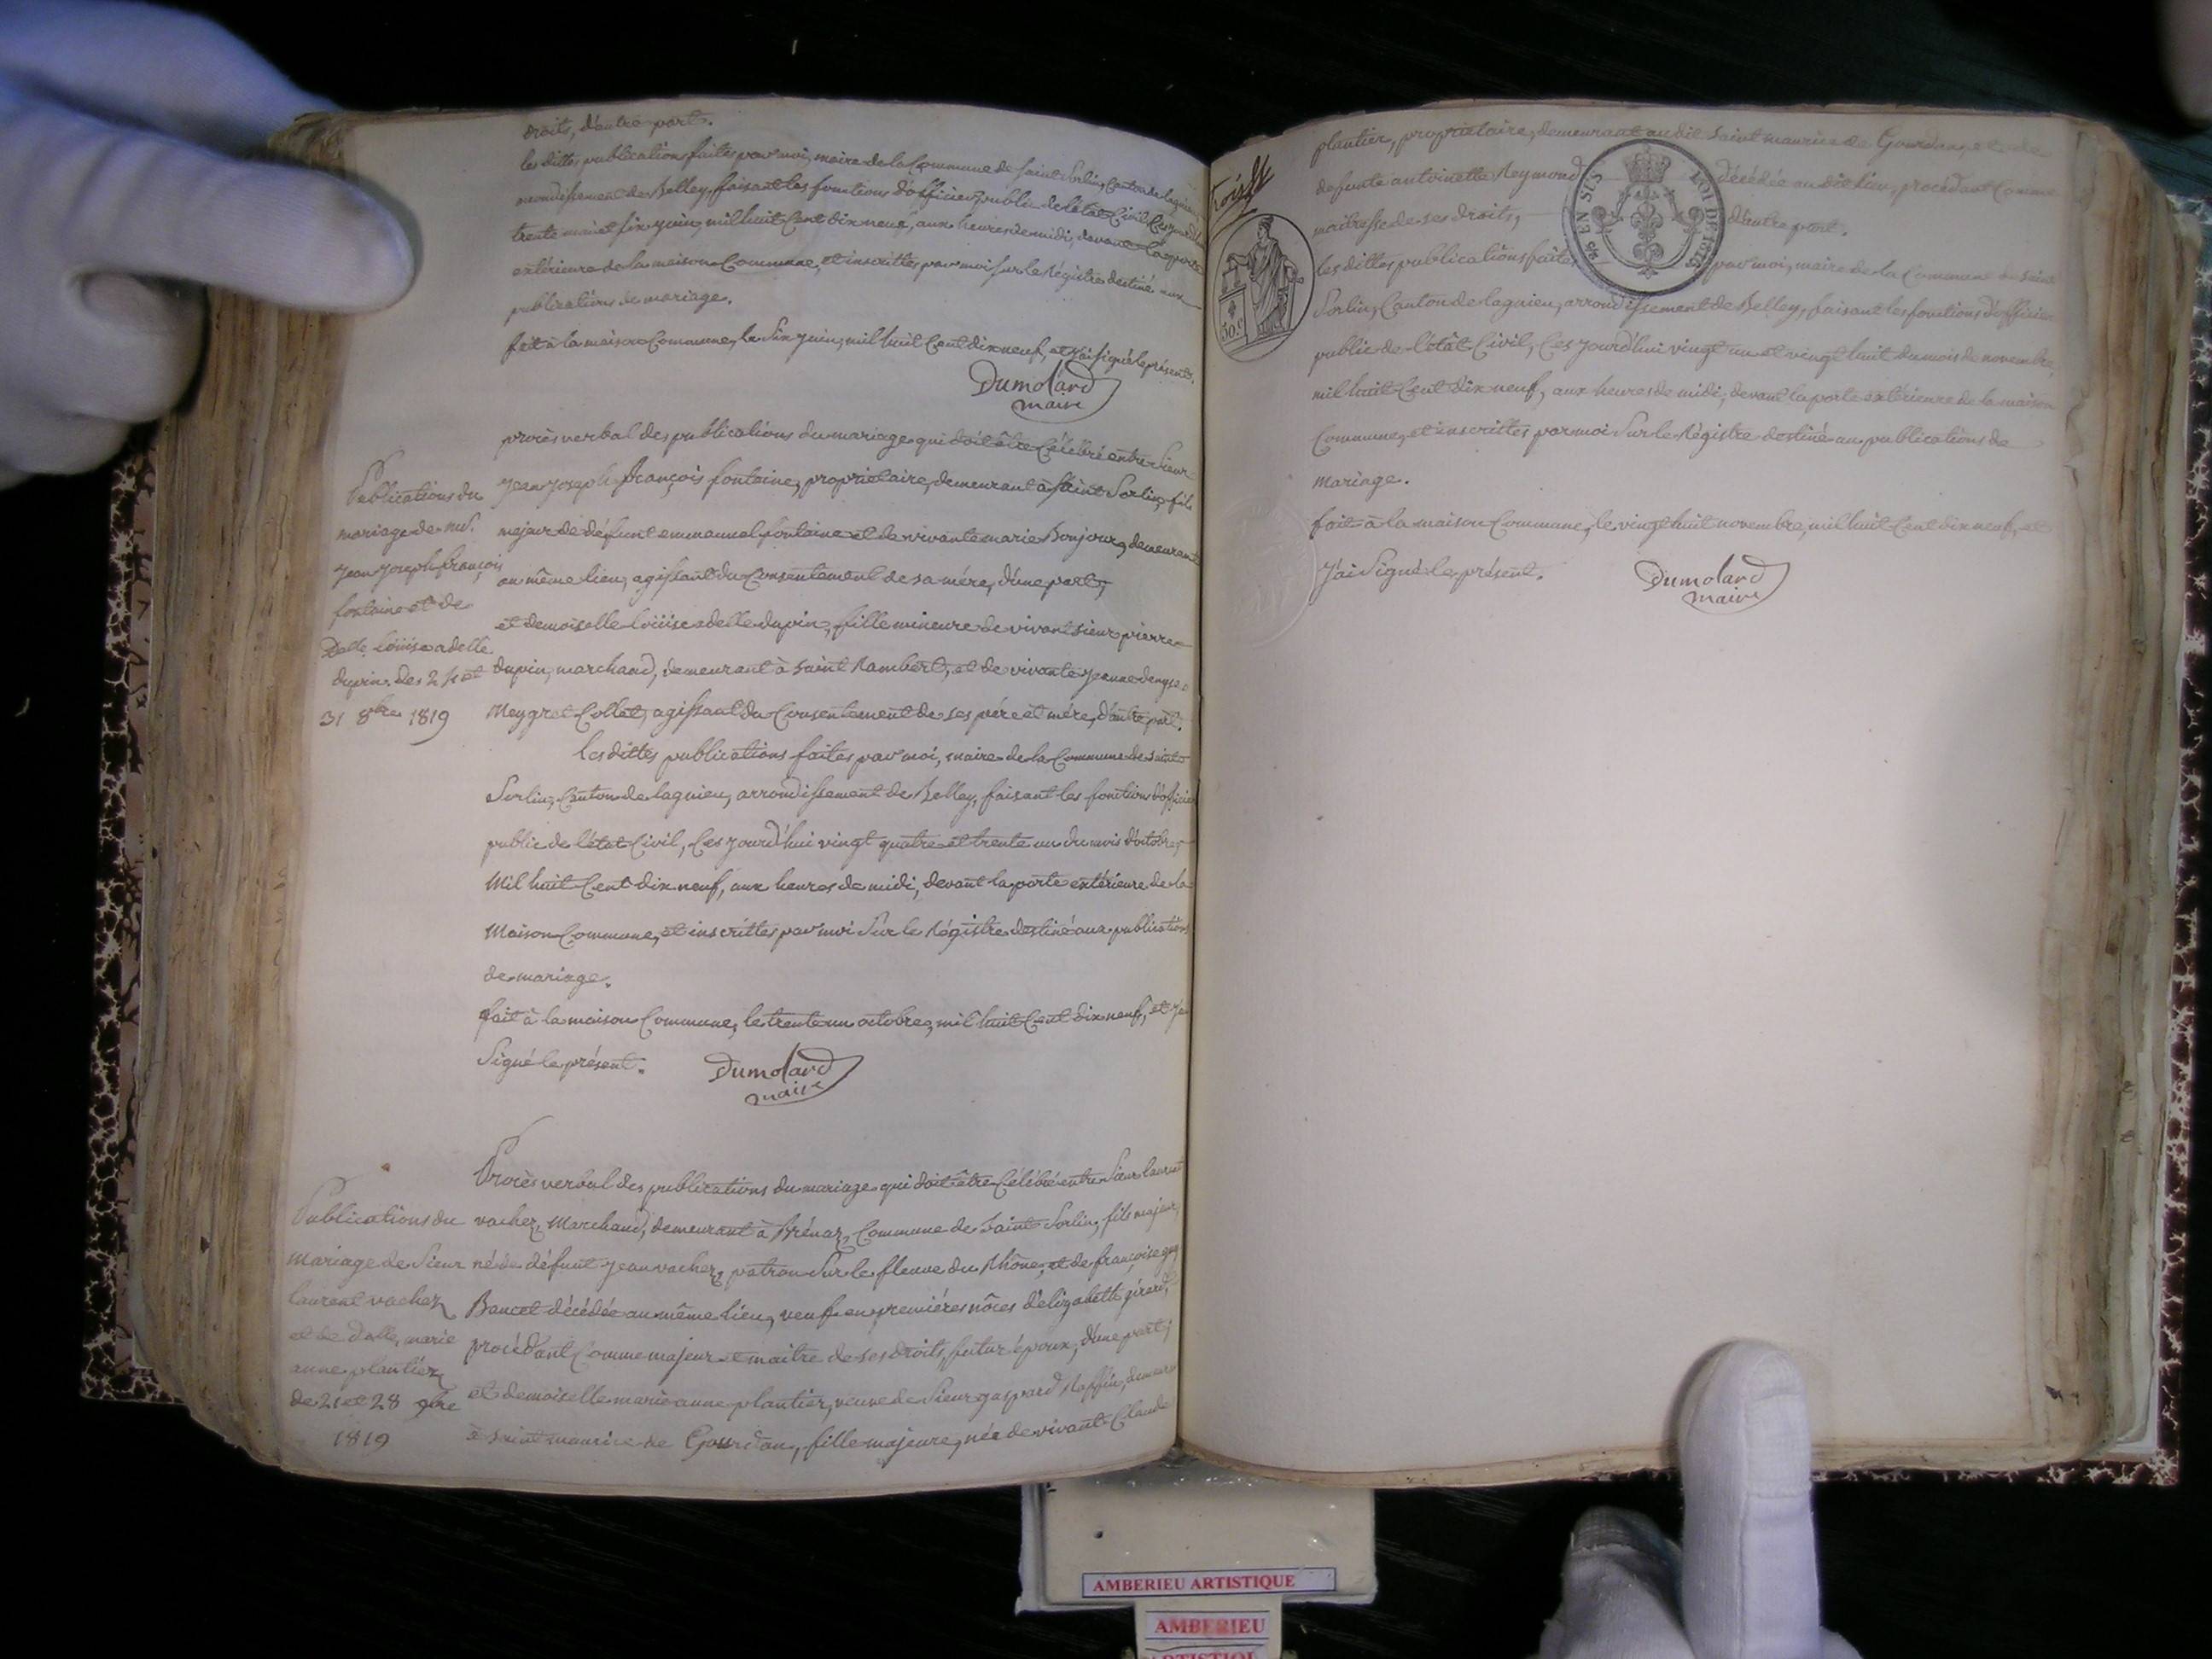 droits, d'autre part.
les dittes publications faites par moi, maire de la Commune de saint Sorlin, Canton de lagnieu,
arrondissement de Belley, faisant les fonctions d'officier public de l'état Civil, Ces jourd'hui
trente mai et six juin, mil huit Cent dix neuf, aux heures de midi, devant la porte
extérieure de la maison Commune, et inscrittes par moi sur le Régistre destiné aux
publications de mariage.
fait à la maison Commune, le Six juin, mil huit Cent dix neuf, et j'ai signé le présent.
Dumolard
maire
Publications du
mariage de mr.
Jean Joseph françois
fontaine et de
Delle. loüise adelle
dupin. des 24 et
31 8bre 1819
procès verbal des publications du mariage qui doit être Célébré entre Sieur
Jean Joseph françois fontaine, propriétaire, demeurant à Saint Sorlin, fils
majeur de défunt emmanuel fontaine et de vivante marie Bonjour, demeurant
au même lieu, agissant du Consentement de sa mére, d'une part,
et demoiselle loüise adelle dupin, fille mineure de vivant sieur pierre
dupin, marchand, demeurant à Saint Rambert, et de vivante jeanne denyse
Meygret Collet, agissant du Consentement de ses pére et mére, d'autre part.
les dittes publications faites par moi, maire de la Commune de Saint
Sorlin, Canton de lagnieu, arrondissement de Belley, faisant les fonctions d'officier
public de l'état Civil, Ces jourd'hui vingt quatre et trente un du mois d'octobre,
Mil huit Cent dix neuf, aux heures de midi, devant la porte extérieure de la
Maison Commune, et inscrittes par moi Sur le Régistre destiné aux publications
de mariage.
fait à la maison Commune, le trente un octobre, mil huit Cent dix neuf, et j'ai
Signé le présent.
Dumolard
maire
Publications du
Mariage de Sieur
laurent vachez
et de Delle. marie
anne plantier
de 21 et 28 9bre
1819
Procès verbal des publications du mariage qui doit être Célébré entre Sieur laurent
vachez, Marchand, demeurant à Brénaz, Commune de Saint Sorlin, fils majeur,
né de défunt jean vachez, patron Sur le fleuve du Rhône, et de françoise guy
Bancet décédée au même lieu, veuf en premiéres nôces d'elizabette girard,
procédant Comme majeur et maitre de ses droits, futur époux, d'une part;
et demoiselle marie anne plantier, veuve de Sieur gaspard Raffin, demeurant
à saint maurice de Gourdan, fille majeure, née de vivant Claude
plantier, propriétaire, demeurant au dit Saint maurice de Gourdan, et de
defunte antoinette Reymond décédée au dit lieu, procédant Comme
maitresse de ses droits, d'autre part.
les dittes publications faites par moi, maire de la Commune de Saint
Sorlin, Canton de lagnieu, arrondissement de Belley, faisant les fonctions d'officier
public de l'état Civil, Ces jourd'hui vingt un et vingt huit du mois de novembre,
mil huit Cent dix neuf, aux heures de midi, devant la porte extérieure de la maison
Commune, et inscrittes par moi Sur le Régistre destiné au publications de
mariage.
fait à la maison Commune, le vingt huit novembre, mil huit Cent dix neuf, et
J'ai Signé le présent.
Dumolard
maire
EN SUS
LOI DE 1816
50.c
AMBERIEU ARTISTIQUE
AMBERIEU
ARTISTIQUE